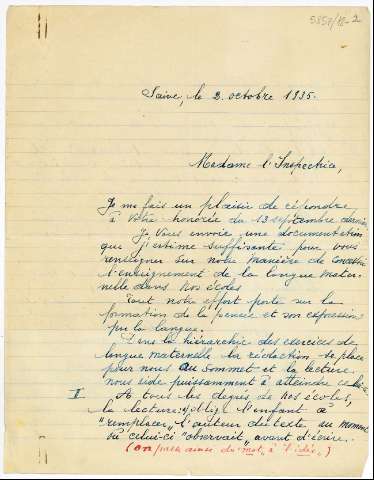 5858/12-2
Saive, le 2. octobre 1935.
Madame l'Inspectrice,
Je me fais un plaisir de répondre
à Votre honorée du 13 septembre dernier.
Je Vous envoie une documentation
que j'estime suffisante pour vous
renseigner sur notre manière de concevoir
l'enseignement de la langue mater-
nelle dans nos écoles
Tout notre effort porte sur la
formation de la pensée et son expression
par la langue.
Dans la hiérarchie des exercices de
langue maternelle la rédaction se place
pour nous au sommet et la lecture
nous aide puissamment à atteindre ce
I. A tous les degrés de nos écoles,
la lecture oblige l'enfant à
"remplacer" l'auteur du texte au moment
où celui-ci "observait" avant d'écrire.
(On passe ainsi du mot, à l'idée.)